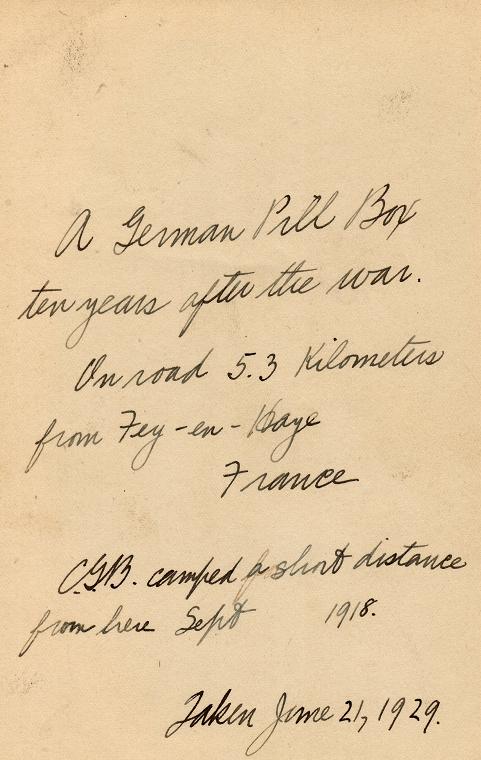 A German Pill Box
ten years after the war.
On road 5.3 Kilometers
from Fey-en-Haye
France
C.G.B. camped a short distance
from here Sept 1918.
Taken June 21, 1929.